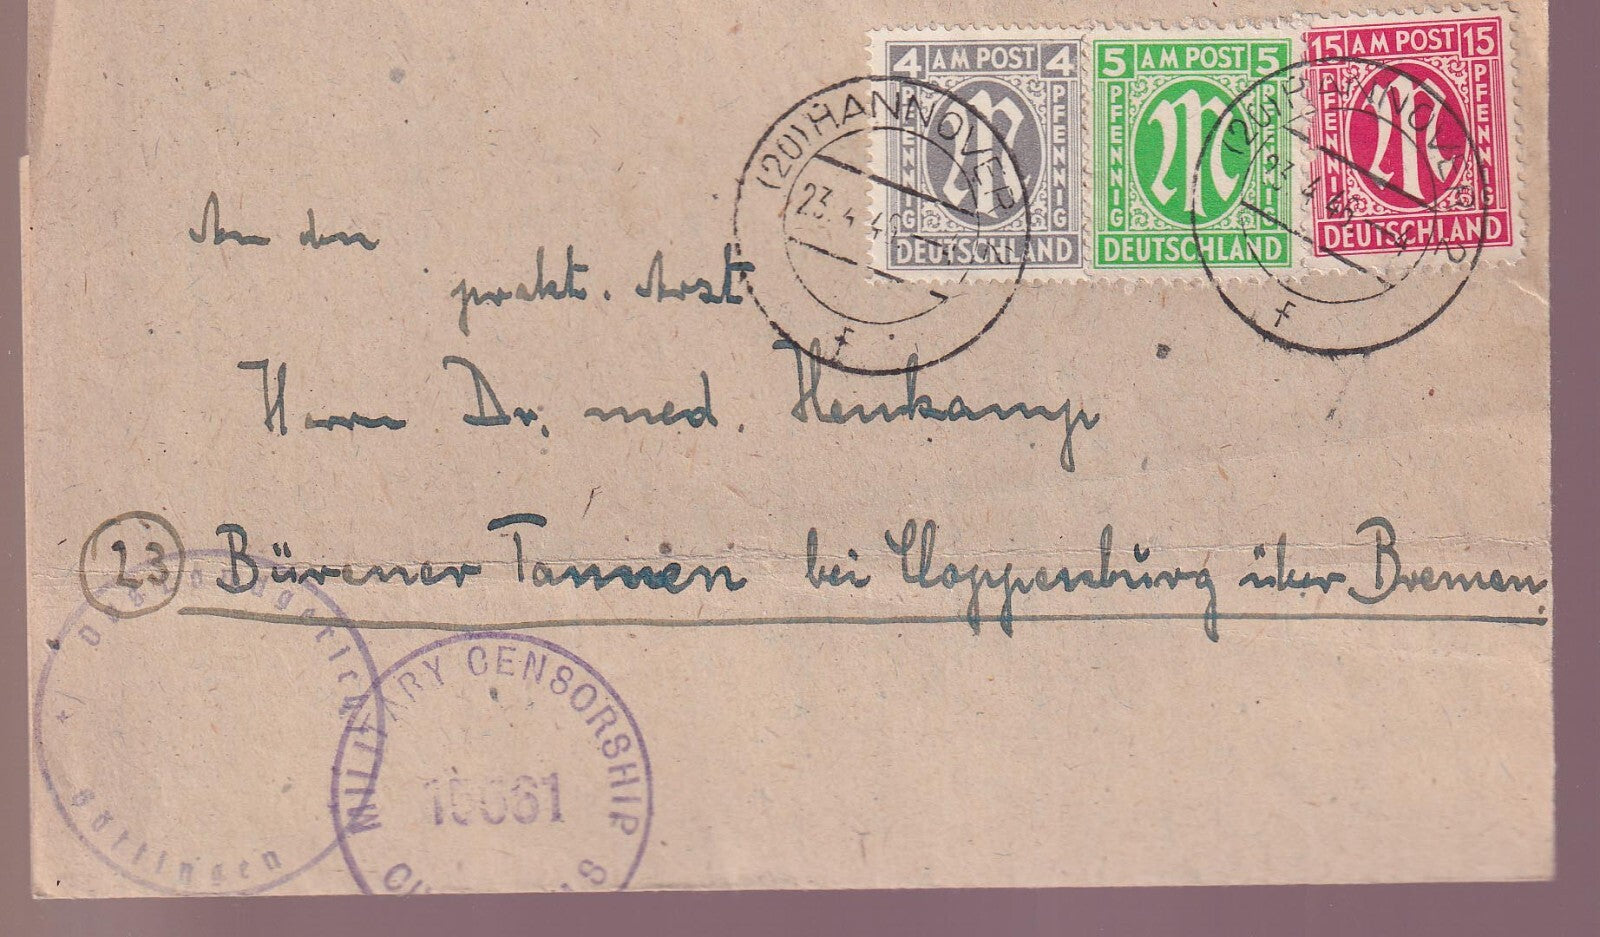 4 AM POST 4
PFENNIG PFENNIG
DEUTSCHLAND
5 AM POST 5
PFENNIG PFENNIG
DEUTSCHLAND
15 AM POST 15
PFENNIG PFENNIG
DEUTSCHLAND
(20) HANNOVER
23.4.46
f
(20) HANNOVER 2
23.4.46
f
An den
prakt. Arzt
Herrn Dr. med. Henkamp
23 Bürener Tannen bei Cloppenburg über Bremen.
Göttingen
MILITARY CENSORSHIP